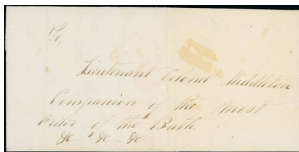 To,
Lieutenant Colonel Middleton
Companion of the Most
Order of the Bath
&c &c &c